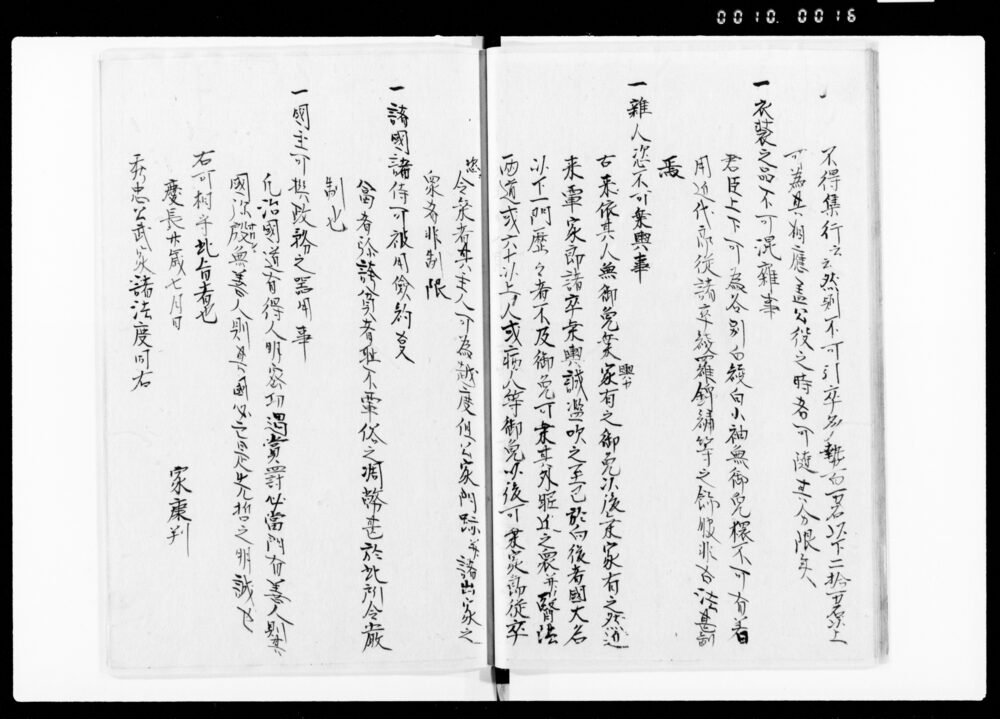 0010. 0016
不得集行云云然則不可引卒多勢百万石以下二拾万石以上
可為其相應蓋公役之時者可随其分限矣
一衣裳之品不可混雑事
君臣上下可為各別白綾白小袖無御免穣不可有着
用近代郎従諸卒綾羅錦繍等之飾服非古法甚制
焉
一雑人恣不可乗輿事
古来依其人無御免乗家有之御免以後乗家有之然近
輿
来軍家郎諸卒乗輿誠濫吹之至已於向後者國大名
以下一門歴々者不及御免可乗其外昵近之衆并醫法
両道或六十以上人或病人等御免以後可乗家郎従卒
恣令乗者其主人可為越度但公家門跡并諸出家之
衆者非制限
一諸國諸侍可被用儉約叓
富者弥誇貧者耻不軍俗之凋弊甚於此所令嚴
制也
一國主可撰政務之器用事
凡治國道有得人明察功過賞罰必當門有善人則其
國弥殷無善人則其國必亡是先哲之明誡也
右可相守此旨者也
慶長廿歳七月日
家康判
秀忠公武家諸法度同右